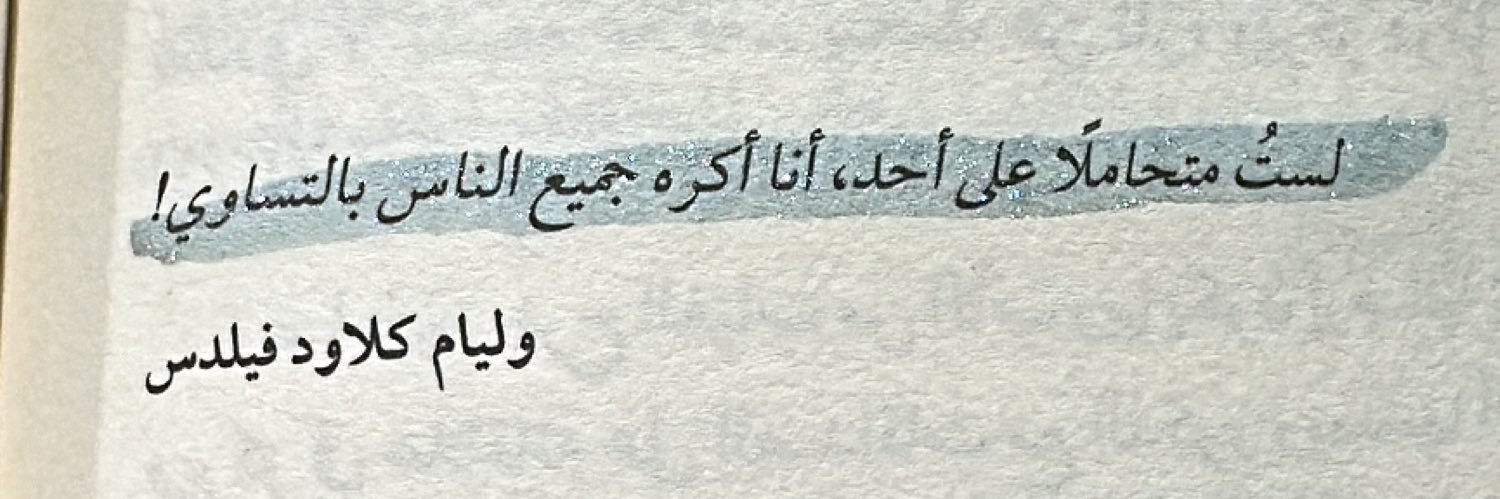 لستُ متحاملًا على أحد، أنا أكره جميع الناس بالتساوي!
وليام كلاود فيلدس